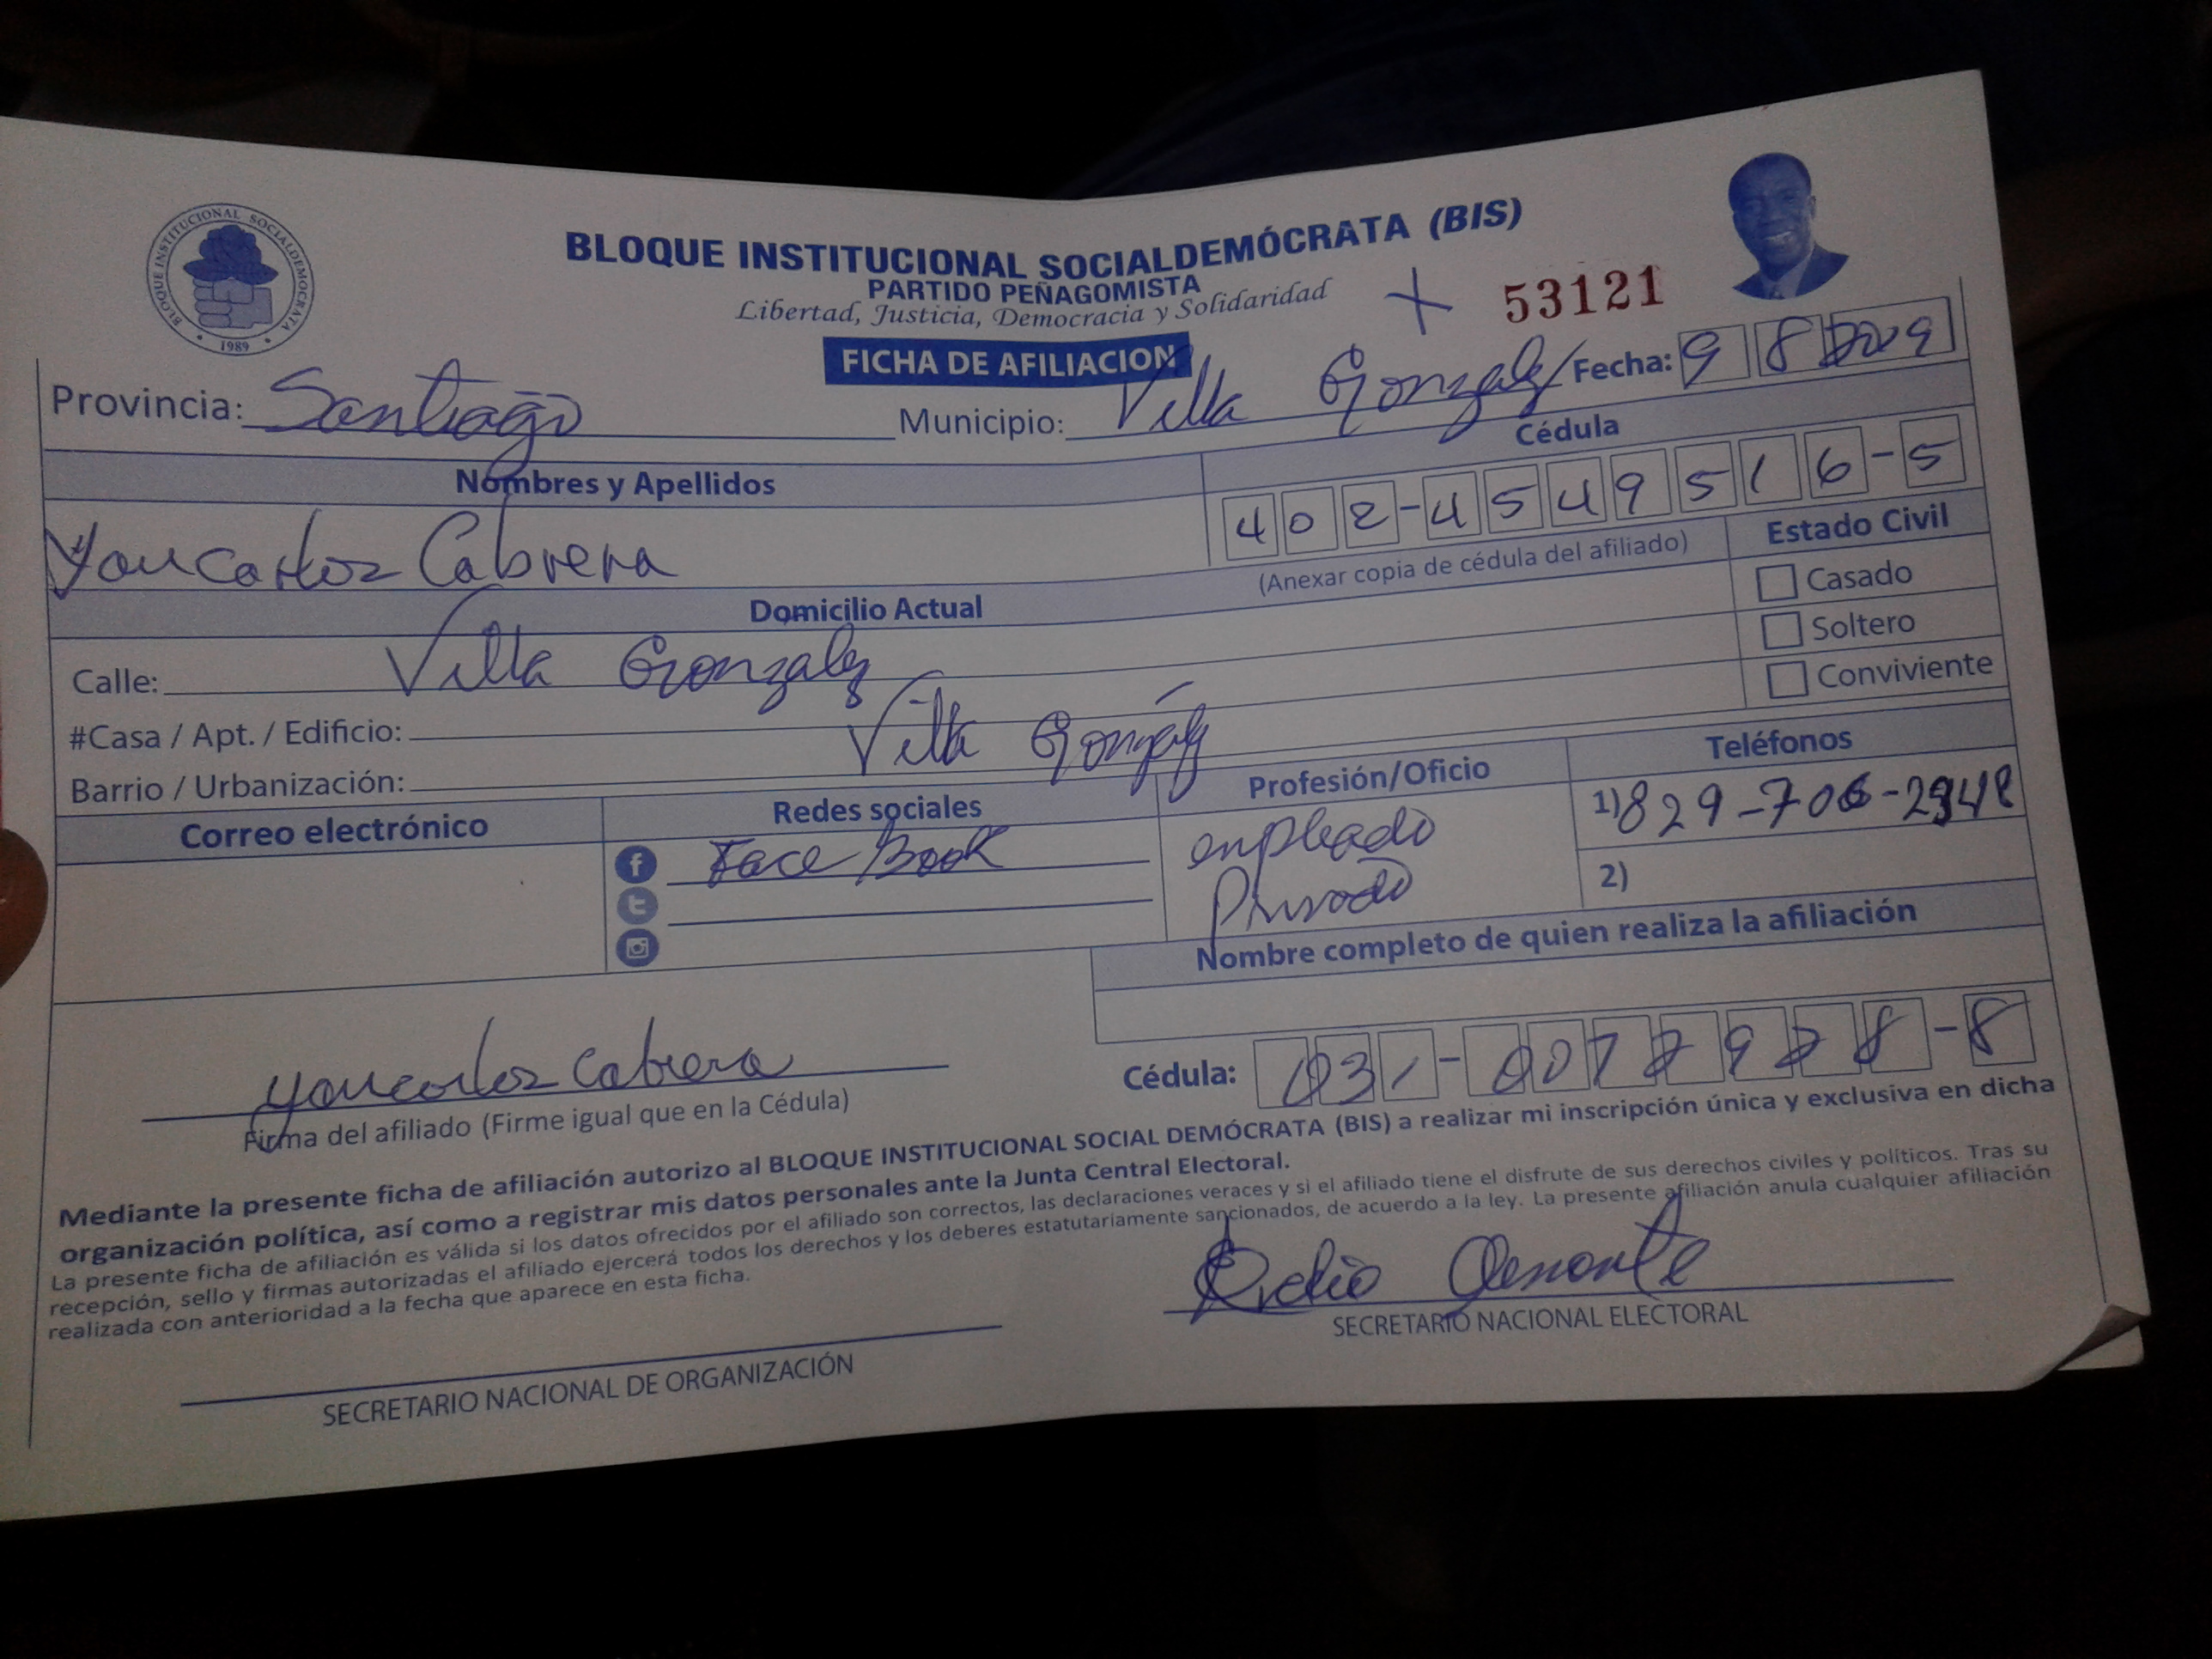 BLOQUE INSTITUCIONAL SOCIALDEMOCRATA
1989
BLOQUE INSTITUCIONAL SOCIALDEMÓCRATA (BIS)
PARTIDO PEÑAGOMISTA
Libertad, Justicia, Democracia y Solidaridad
53121
FICHA DE AFILIACION
Provincia: Santiago Municipio: Villa Gonzalez Fecha: 9 8 2019
Nombres y Apellidos Cédula
Youcarlos Cabrera 402-4549516-5
(Anexar copia de cédula del afiliado)
Estado Civil
Casado
Soltero
Conviviente
Domicilio Actual
Calle: Villa Gonzalez
#Casa / Apt. / Edificio:
Barrio / Urbanización: Villa Gonzalez
Correo electrónico Redes sociales Profesión/Oficio Teléfonos
Face Book
enpleado
Privado
1) 829-706-2948
2)
Nombre completo de quien realiza la afiliación
youcarlos Cabrera
Firma del afiliado (Firme igual que en la Cédula)
Cédula: 031-0072928-8
Mediante la presente ficha de afiliación autorizo al BLOQUE INSTITUCIONAL SOCIAL DEMÓCRATA (BIS) a realizar mi inscripción única y exclusiva en dicha
organización política, así como a registrar mis datos personales ante la Junta Central Electoral.
La presente ficha de afiliación es válida si los datos ofrecidos por el afiliado son correctos, las declaraciones veraces y si el afiliado tiene el disfrute de sus derechos civiles y políticos. Tras su
recepción, sello y firmas autorizadas el afiliado ejercerá todos los derechos y los deberes estatutariamente sancionados, de acuerdo a la ley. La presente afiliación anula cualquier afiliación
realizada con anterioridad a la fecha que aparece en esta ficha.
SECRETARIO NACIONAL ELECTORAL
SECRETARIO NACIONAL DE ORGANIZACIÓN